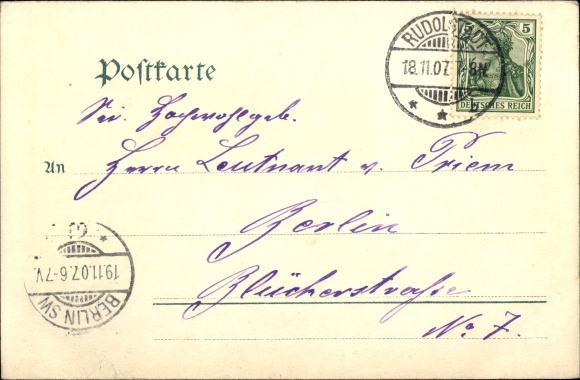 RUDOLSTADT
18.11.07. 7-8N.
* * b
5
DEUTSCHES REICH
Postkarte
Sr. Hochwohlgeb.
An Herrn Leutnant v. Priem
Berlin
Blücherstrasse
No 7.
19.11.07. 6-7V.
BERLIN SW